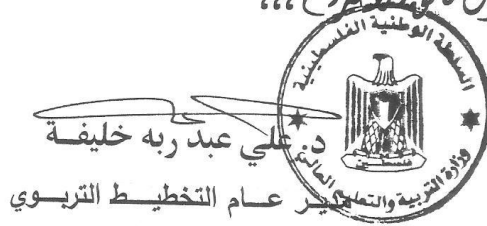 السلطة الوطنية الفلسطينية
فلسطين
وزارة التربية والتعليم العالي
د. علي عبد ربه خليفة
مدير عام التخطيط التربوي